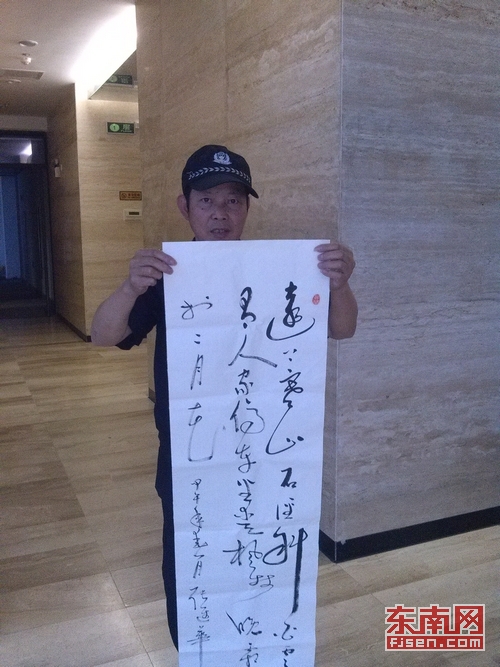 遠上寒山石径斜白云
有人家停车坐爱枫林晚霜
於二月花
甲午年
月
东南网
FJSEN.COM